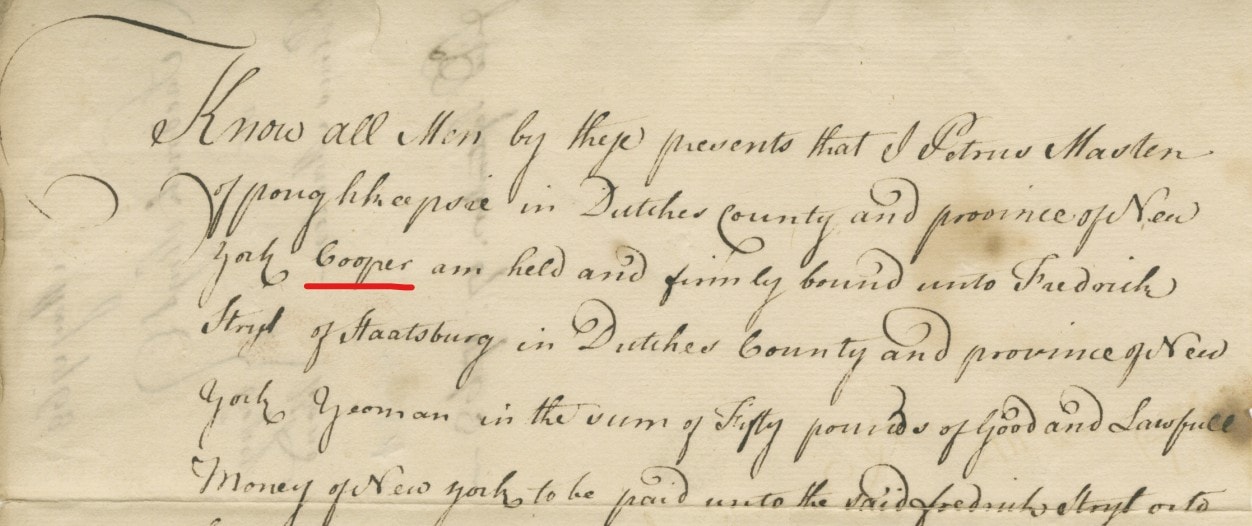 Know all Men by these presents that I Petrus Masten
of poughkeepsie in Dutches County and province of New
York Cooper am held and firmly bound unto Fredrick
Stryt of Staatsburg in Dutches County and province of New
York Yeoman in the sum of Fifty pounds of Good and Lawfull
Money of New york to be paid unto the said fredrick Stryt or to